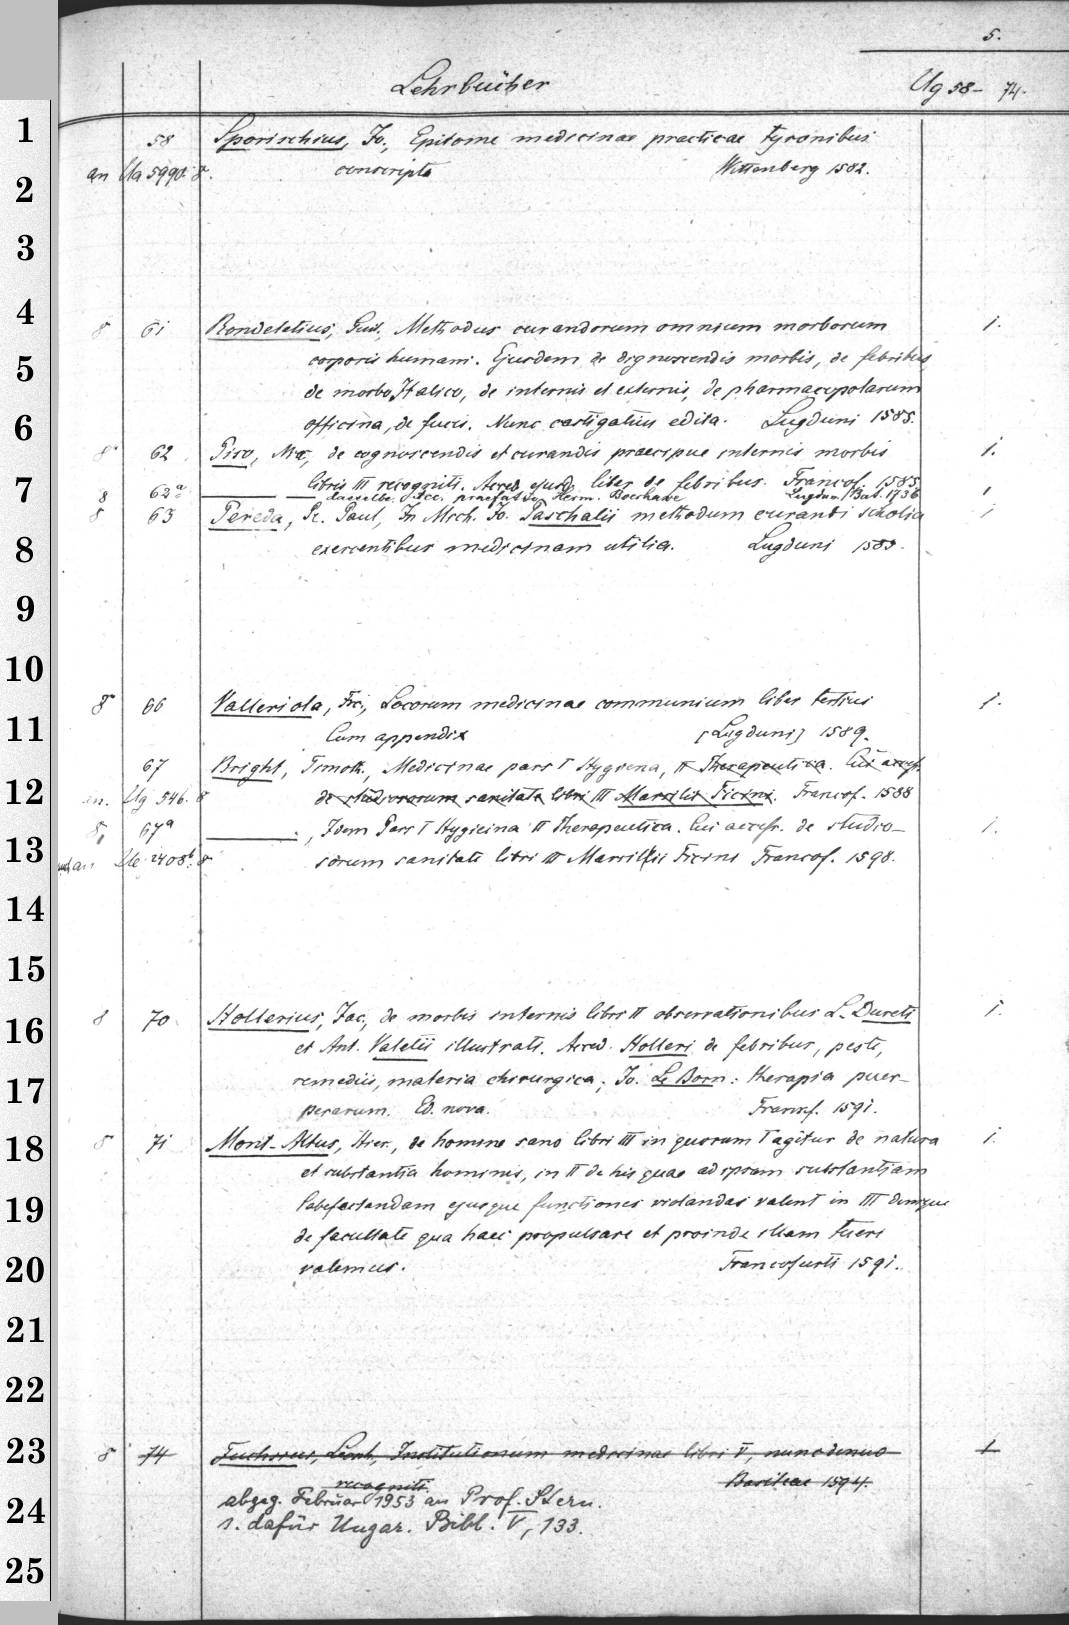 5.
Lehrbücher Ug 58- 74.
1
58 Sporischius, Jo., Epitome medicinae practicae tyronibus
an Ua 5990. 8. conscripta Wittenberg 1582.
2
3
4
8 61 Rondeletius, Gul., Methodus curandorum omnium morborum 1.
corporis humani. Ejusdem de dignoscendis morbis, de febribus
5
de morbo Italico, de internis et externis, de pharmacopolarum
officina, de fucis. Nunc castigatius edita. Lugduni 1585.
6
8 62 Piso, Nic., de cognoscendis et curandis praecipue internis morbis 1.
7
libris III recogniti. Acced. ejusd. liber de febribus. Francof. 1585.
8 62a ——— — dasselbe. Acc. praefatio Herm. Boerhave Lugdun. Bat. 1736 1
8 63 Pereda, Pe. Paul, In Mich. Jo. Paschalii methodum curandi scholia 1
8
exercentibus medicinam utilia. Lugduni 1585.
9
10
8 66 Valleriola, Frc., Locorum medicinae communium liber tertius 1.
11
Cum appendix [Lugduni] 1589.
67 Bright, Timoth., Medicinae pars I Hygiena, II Therapeutica. Cui access.
12
an. Ug 546. 8 de studiosorum sanitate libri III Marsilii Ficini. Francof. 1588
8 67a ———, Idem Pars I Hygieina II Therapeutica. Cui access. de studio- 1.
13
an 2408b. 8 sorum sanitate libri III Marsilii Ficini Francof. 1598.
14
15
16
8 70 Hollerius, Jac., de morbis internis libri II observationibus L. Dureti 1.
et Ant. Valetii illustrati. Acced. Holleri de febribus, peste,
17
remediis, materia chirurgica; Jo. Le Bon: therapia puer-
perarum. Ed. nova. Francf. 1591.
18
8 71 Mont-Altus, Hier., de homine sano libri III in quorum I agitur de natura 1.
et substantia hominis, in II de his quae ad ipsam substantiam
19
labefactandam ejusque functiones violandas valent in III denique
de facultate qua haec propulsare et proinde illam tueri
20
valemus. Francofurti 1591.
21
22
23
8 74 Fuchsius, Leonh., Institutionum medicinae libri V, nunc denuo 1
recogniti. Basileae 1594.
24
abgeg. Februar 1953 an Prof. Stern.
s. dafür Ungar. Bibl. V, 133.
25